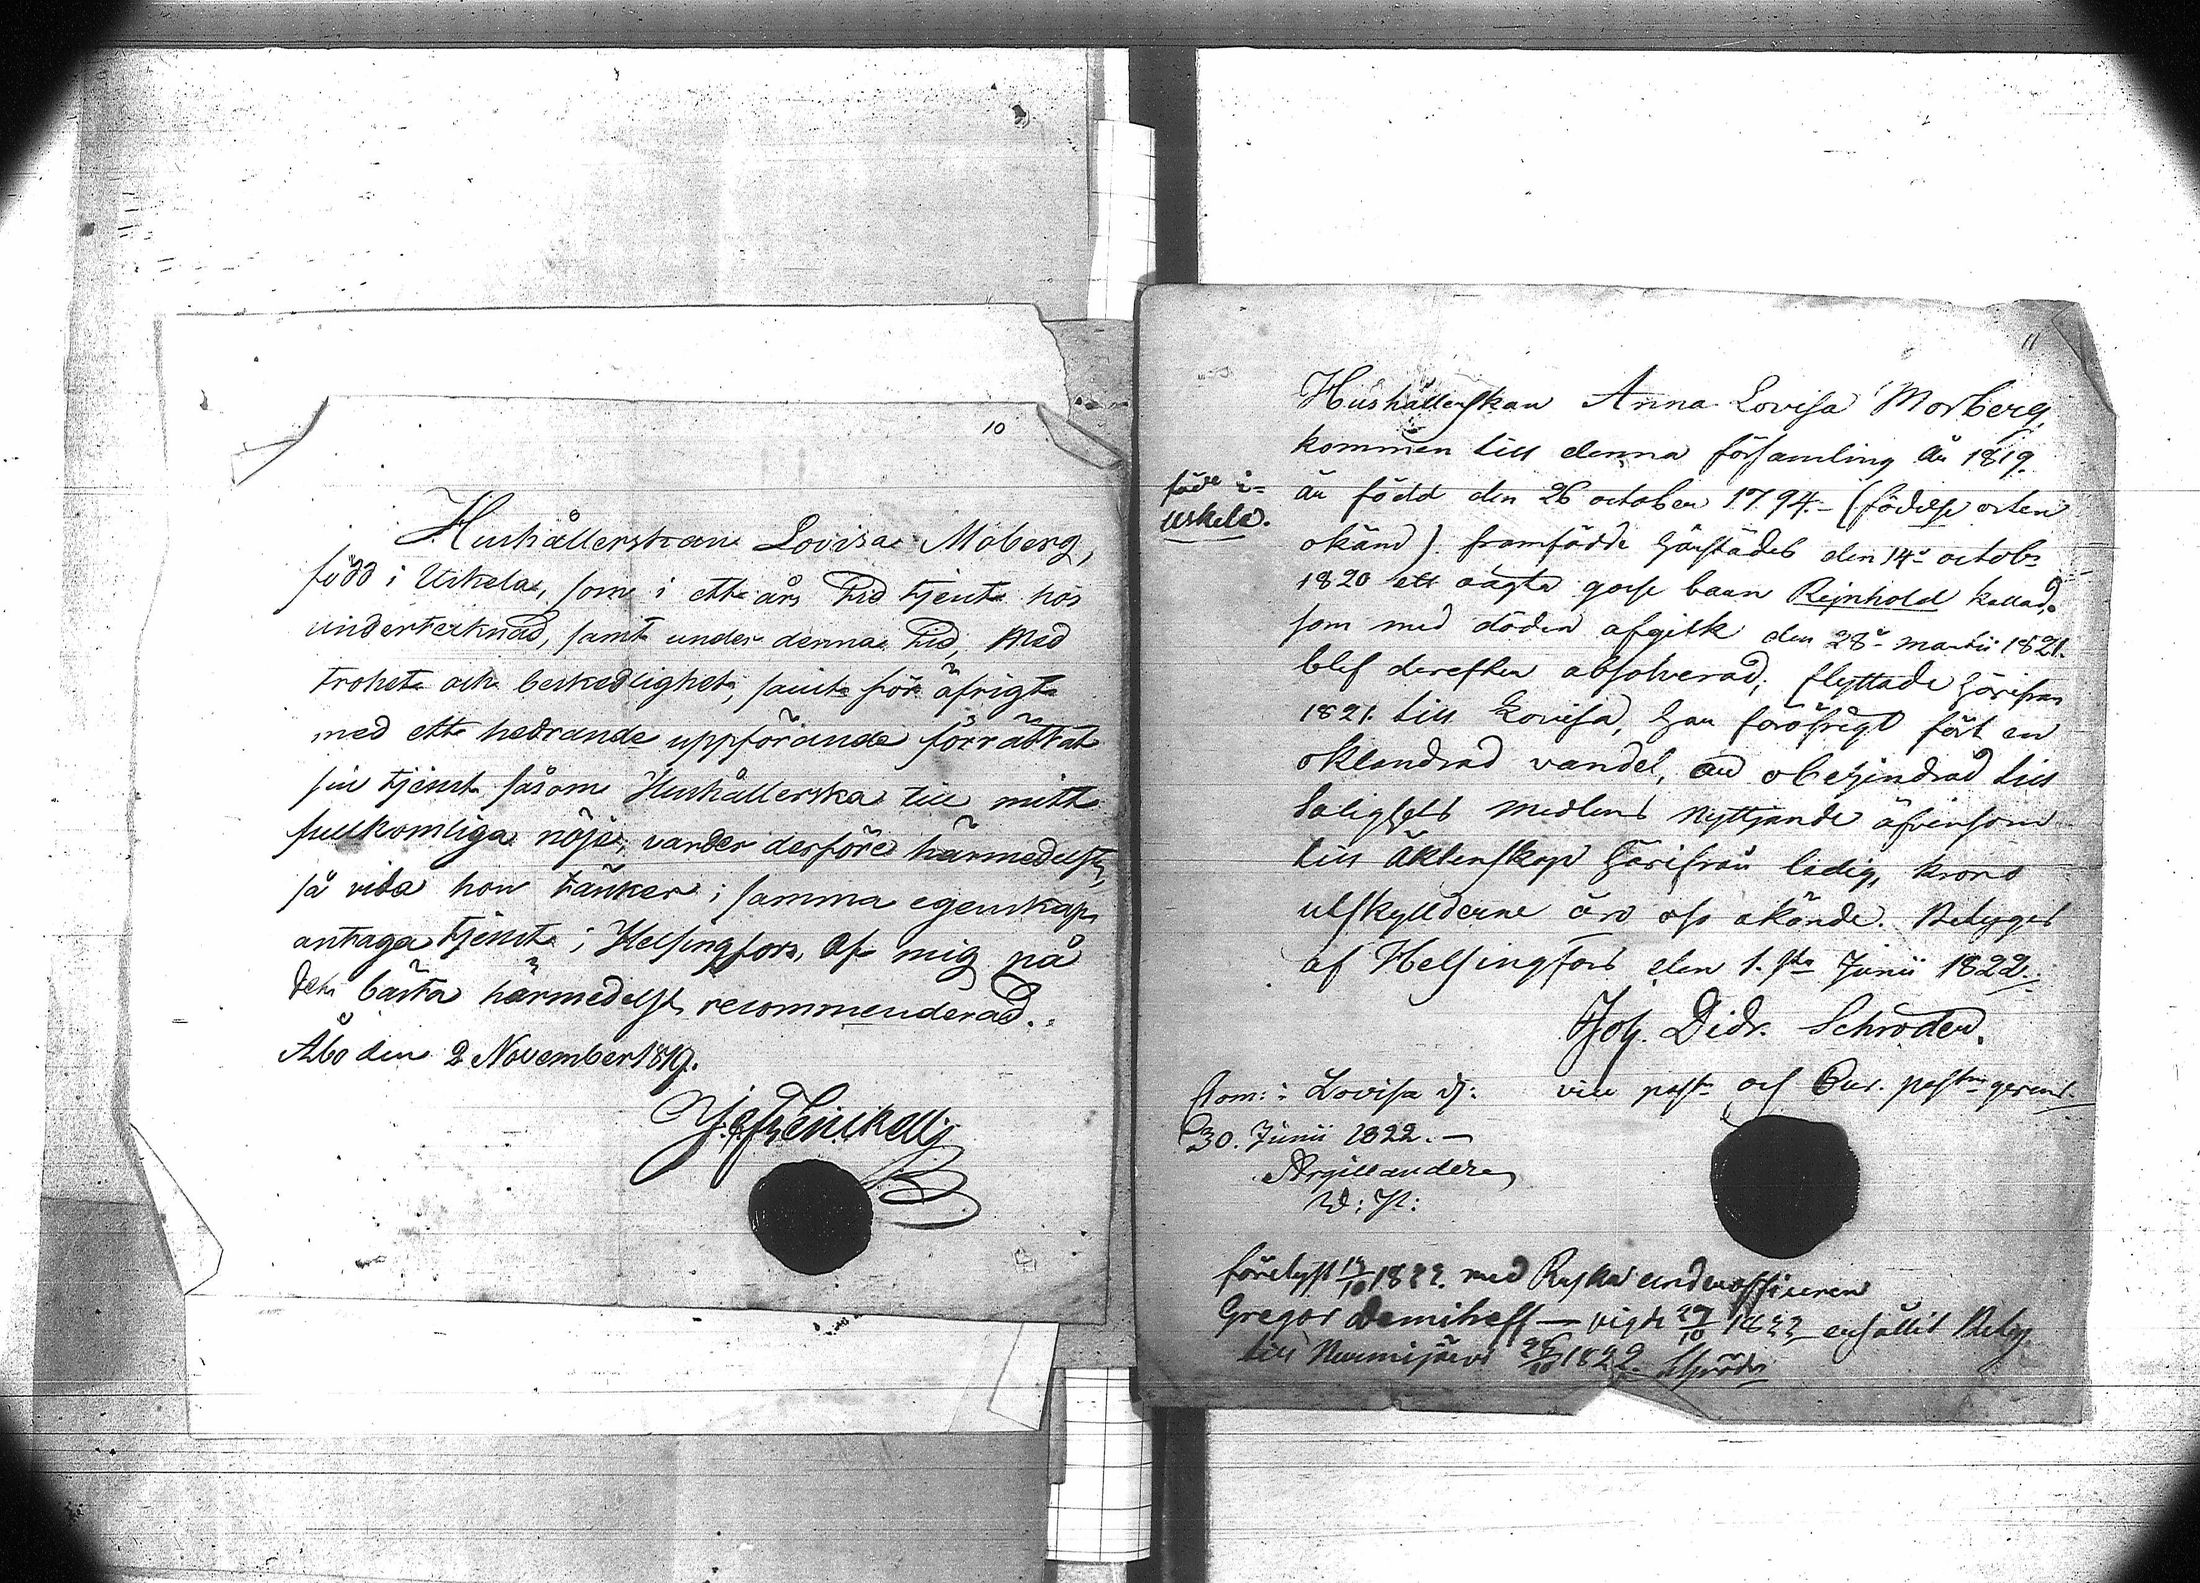 10
Hushållerskan Lovisa Moberg,
född i Uskela, som i ett års tid tjent hos
undertecknad, samt under denna tid, med
trohet och beskedlighet, samt för öfrigt
med ett hedrande uppförande förrättat
sin tjenst såsom Hushållerska till mitt
fullkomliga nöje, varder derföre härmedelst,
så vida hon tänker i samma egenskap
antaga tjenst i Helsingfors, af mig på
det bästa härmedelst recommenderad.
Åbo den 2 November 1819.
11
Hushållerskan Anna Lovisa Morberg,
kommen till denna församling år 1819.
är född den 26 october 1794. - (födelse orten
okänd). framfödde härstädes den 14de octobr
1820 ett oägta gosse barn Rejnhold kallad,
som med döden afgick den 28de martii 1821.
blef derefter absolverad, flyttade härifrån
1821. till Lovisa, har föröfrigt fört en
oklandrad vandel, är obehindrad till
Salighets medlens nyttjande äfvensom
till Äktenskap härifrån ledig, krono
utskylderne äro oss okände. Betygas
af Helsingfors den 1.sta Junii 1822.
Joh. Didr. Schröder.
vice past. och Cur. past. gerens.
född i
Uskela.
kom: i Lovisa d:
30. Junii 1822. -
Argillander
förelyst 13/10 1822. med Ryska underofficeren
Gregor Demiheff - vigde 27/10 1822 erhållit Betyg
till Nurmijärvi 28/10 1822. Schröder